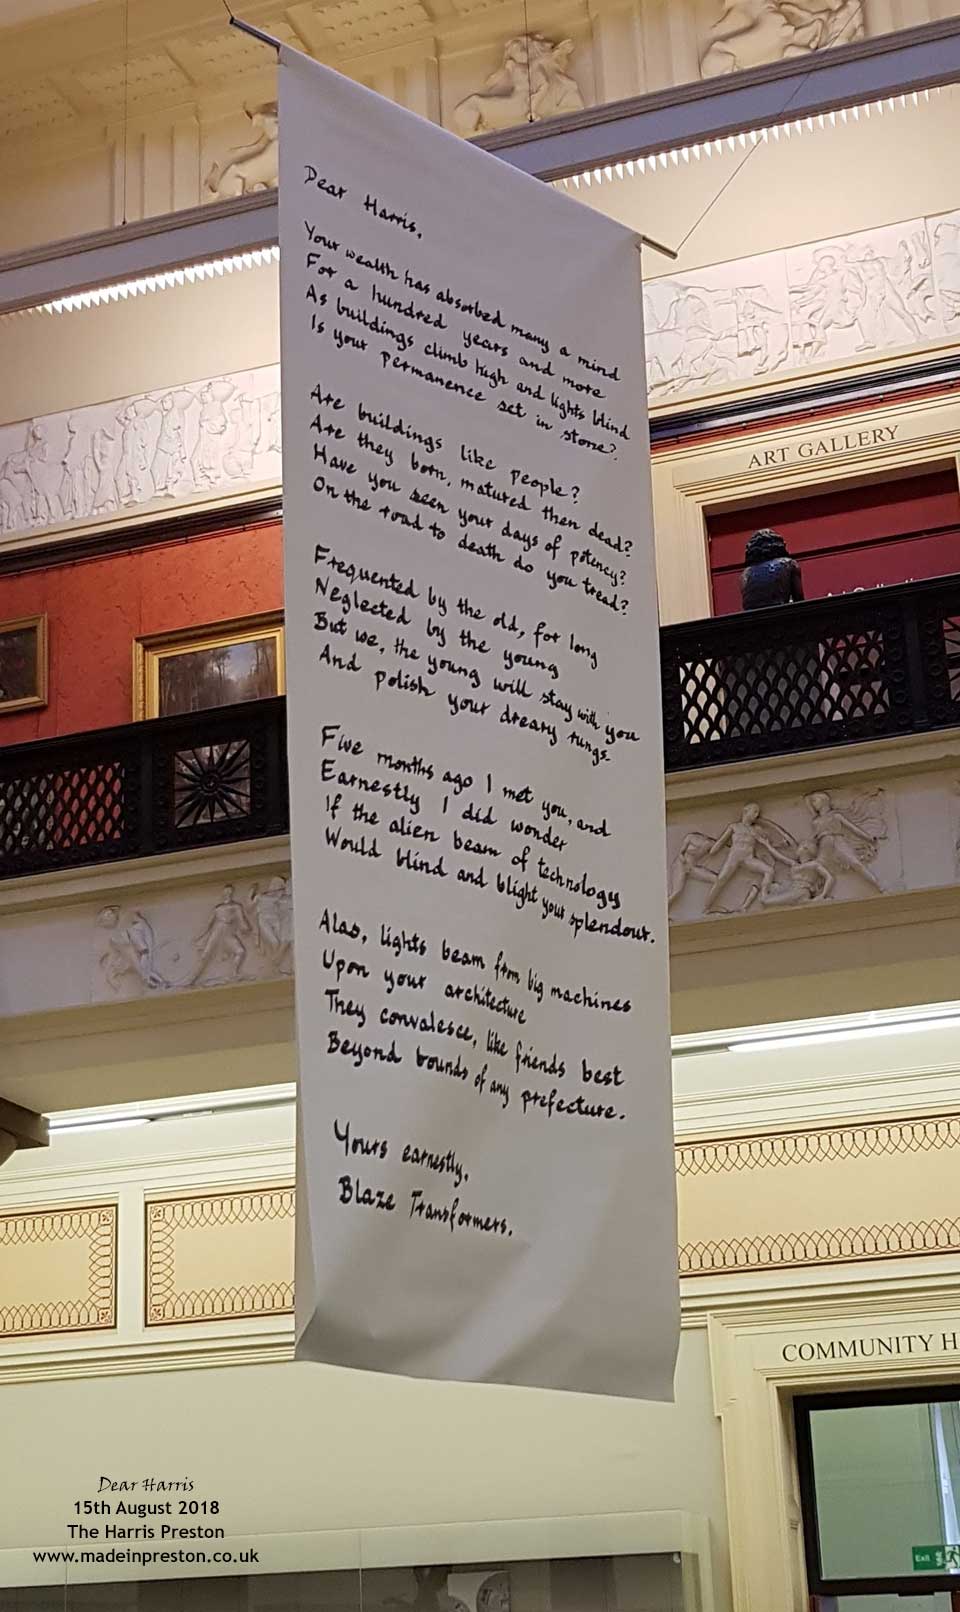 Dear Harris,
Your wealth has absorbed many a mind
For a hundred years and more
As buildings climb high and lights blind
Is your permanence set in stone?
Are buildings like people?
Are they born, matured then dead?
Have you seen your days of potency?
On the road to death do you tread?
Frequented by the old, for long
Neglected by the young
But we, the young will stay with you
And polish your dreary rungs.
Five months ago I met you, and
Earnestly I did wonder
If the alien beam of technology
Would blind and blight your splendour.
Alas, lights beam from big machines
Upon your architecture
They convalesce, like friends best
Beyond bounds of any prefecture.
Yours earnestly,
Blaze Transformers.
ART GALLERY
COMMUNITY H
Exit
Dear Harris
15th August 2018
The Harris Preston
www.madeinpreston.co.uk